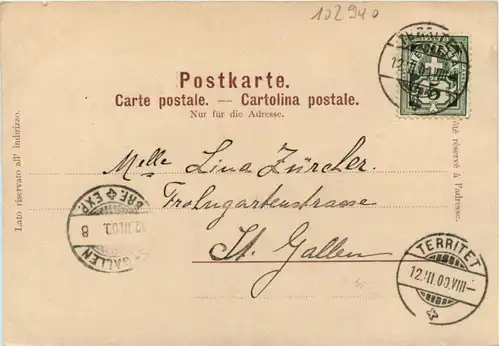 102940
Postkarte.
Carte postale. — Cartolina postale.
Nur für die Adresse.
Lato riservato all' indirizzo.
réservé à l'adresse.
Melle Lina Zürcher.
Frohngartenstrasse
St. Gallen
TERRITET
12.II.00.VIII–
BRF. EXP.
12.II.00. 8
GALLEN
TERRITET
12.II.00.VIII–